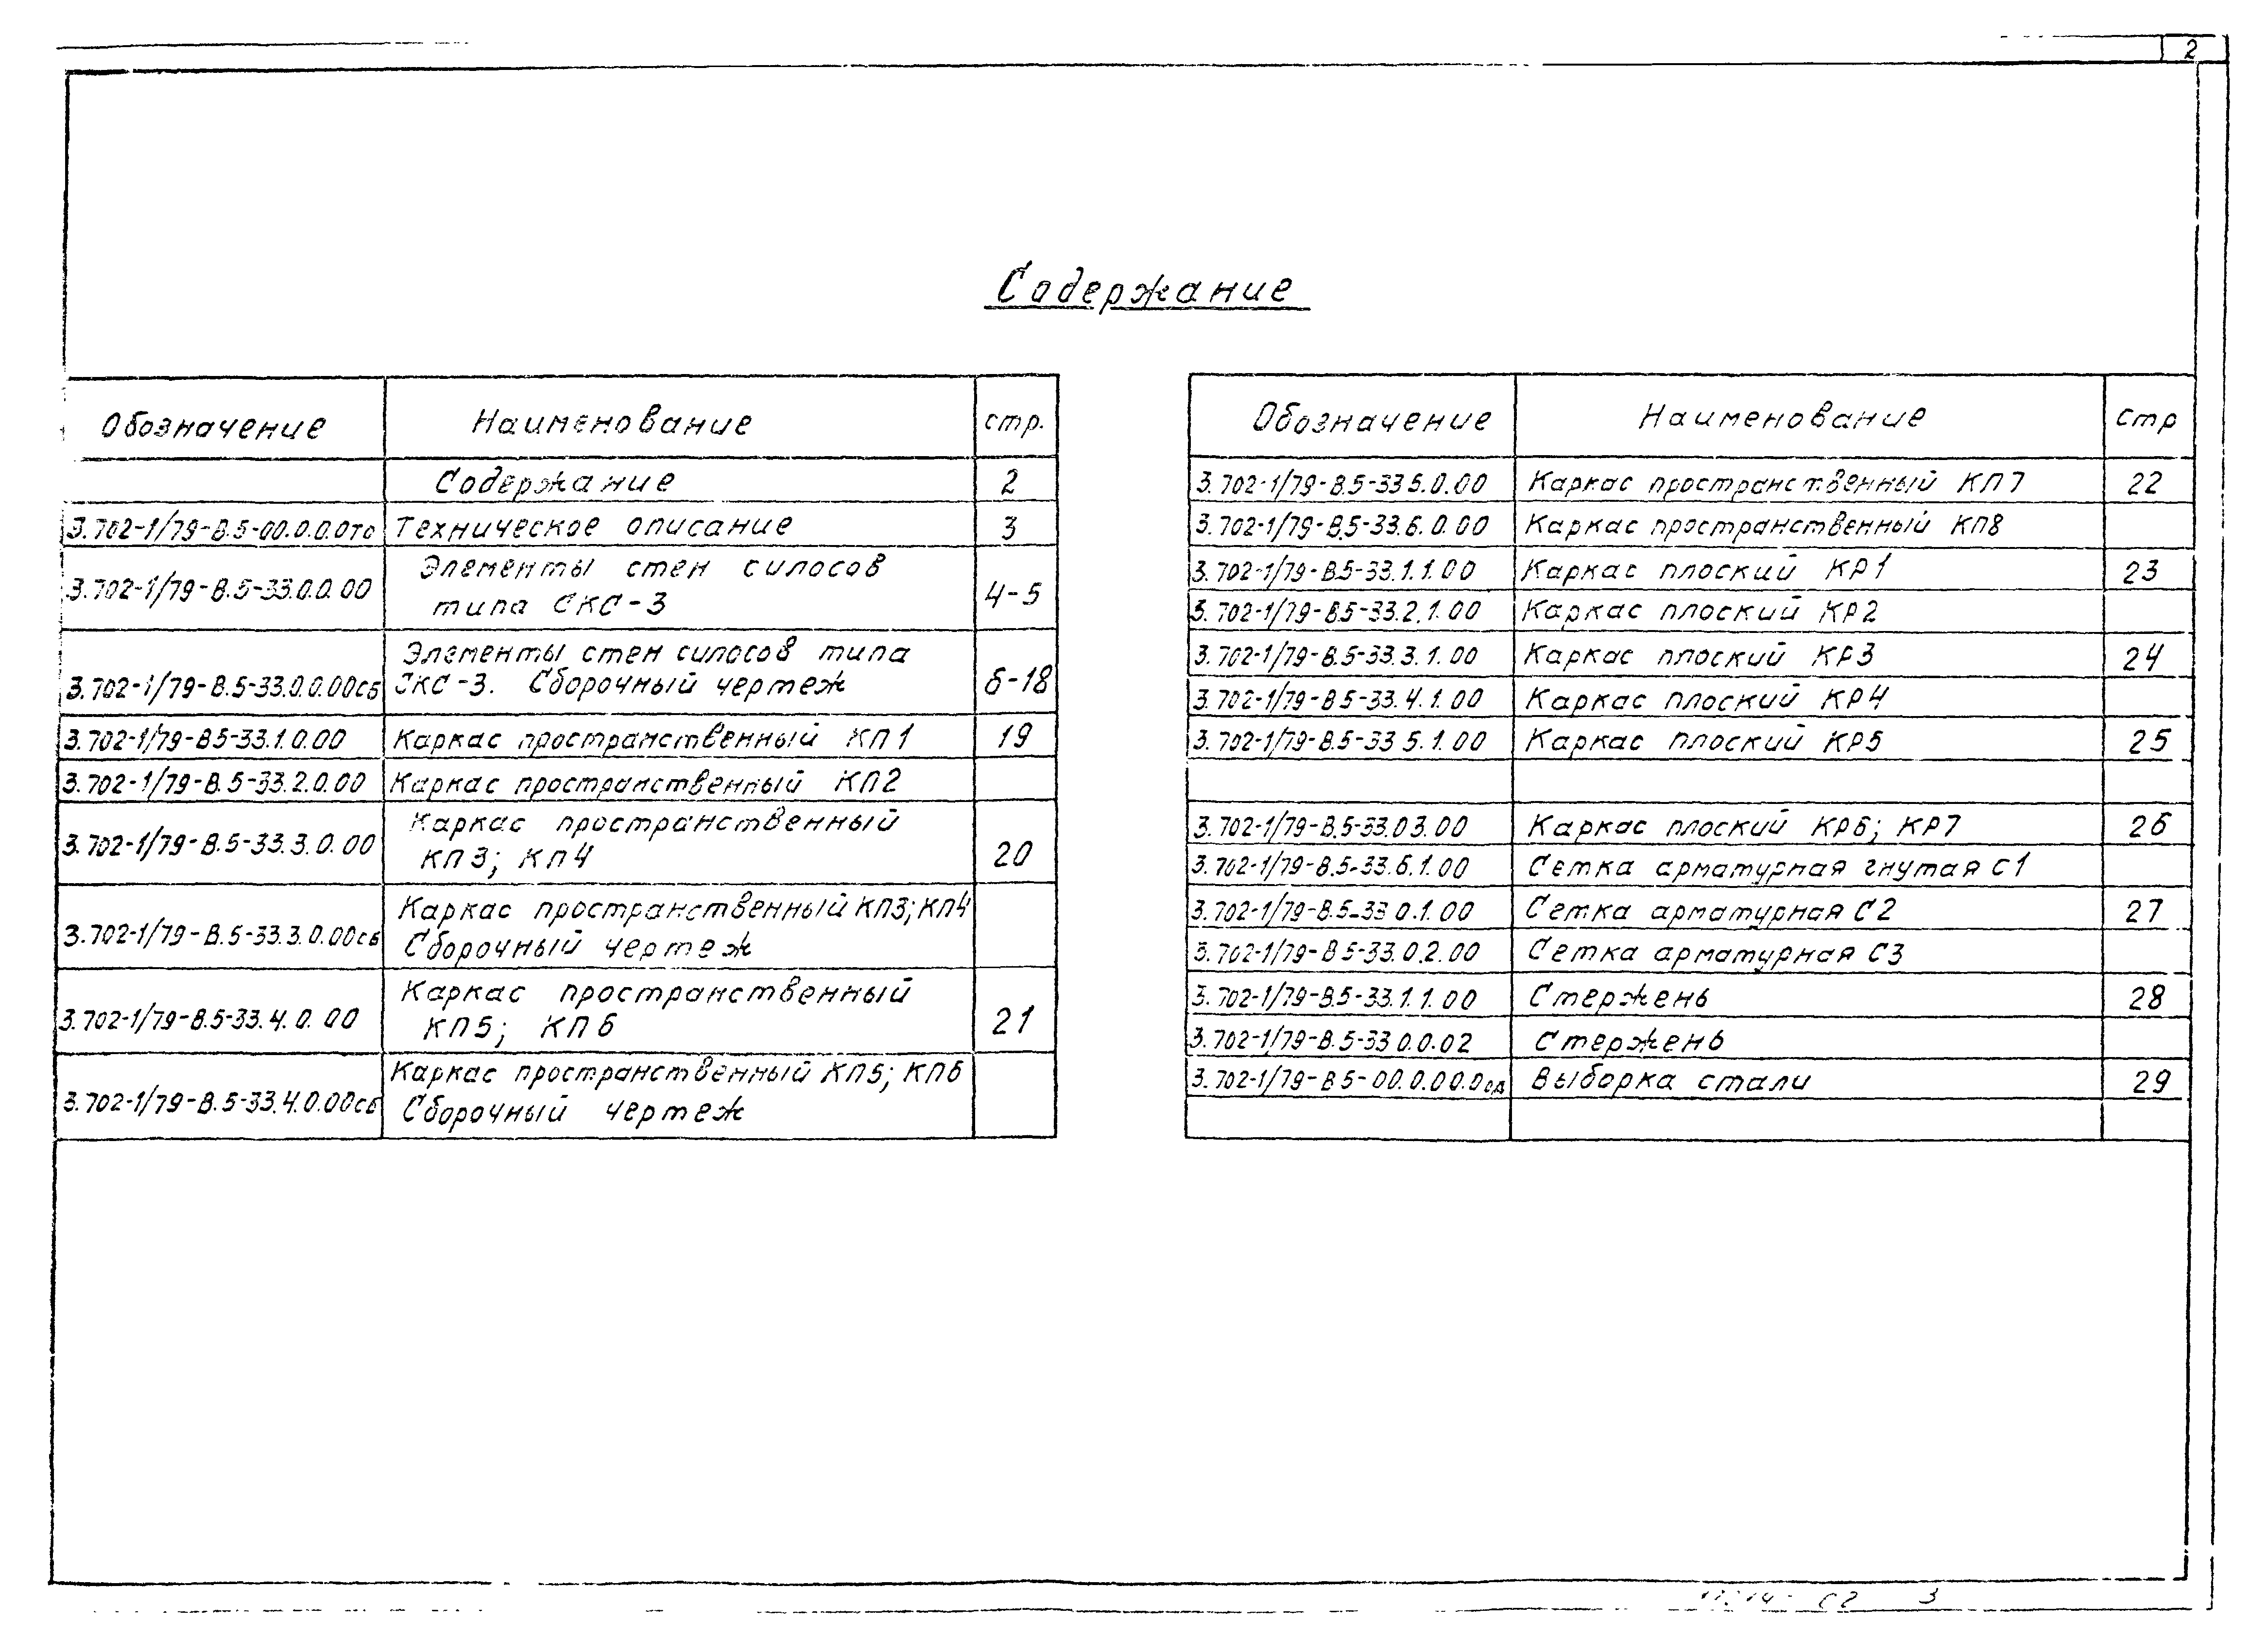 2
Содержание
Обозначение Наименование стр.
Содержание 2
3.702-1/79-В.5-00.0.0.0ТО Техническое описание 3
3.702-1/79-В.5-33.0.0.00 Элементы стен силосов
типа СКС-3 4-5
Элементы стен силосов типа
3.702-1/79-В.5-33.0.0.00сб СКС-3. Сборочный чертеж 6-18
3.702-1/79-В5-33.1.0.00 Каркас пространственный КП1 19
3.702-1/79-В.5-33.2.0.00 Каркас пространственный КП2
3.702-1/79-В.5-33.3.0.00 Каркас пространственный
КП3; КП4 20
Каркас пространственный КП3; КП4
3.702-1/79-В.5-33.3.0.00сб Сборочный чертеж
Каркас пространственный
3.702-1/79-В.5-33.4.0.00 КП5; КП6 21
Каркас пространственный КП5; КП6
3.702-1/79-В.5-33.4.0.00сб Сборочный чертеж
Обозначение Наименование стр
3.702-1/79-В.5-33 5.0.00 Каркас пространственный КП7 22
3.702-1/79-В.5-33.6.0.00 Каркас пространственный КП8
3.702-1/79-В.5-33.1.1.00 Каркас плоский КР1 23
3.702-1/79-В.5-33.2.1.00 Каркас плоский КР2
3.702-1/79-В.5-33.3.1.00 Каркас плоский КР3 24
3.702-1/79-В 5-33.4.1.00 Каркас плоский КР4
3.702-1/79-В.5-33 5.1.00 Каркас плоский КР5 25
3.702-1/79-В.5-33.03.00 Каркас плоский КР6; КР7 26
3.702-1/79-В.5-33.6.1.00 Сетка арматурная гнутая С1
3.702-1/79-В.5-33 0.1.00 Сетка арматурная С2 27
3.702-1/79-В 5-33.0.2.00 Сетка арматурная С3
3.702-1/79-В.5-33.1.1.00 Стержень 28
3.702-1/79-В.5-33 0.0.02 Стержень
3.702-1/79-В 5-00.0.00.0сд Выборка стали 29
С2 3